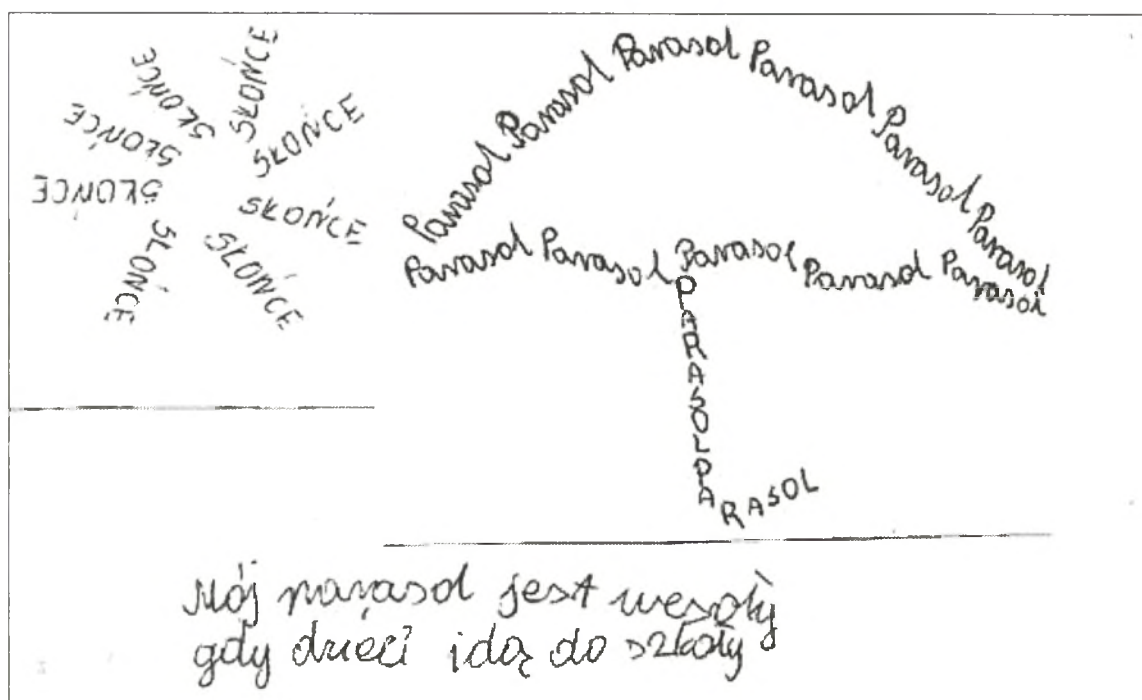 SŁOŃCE
SŁOŃCE
SŁOŃCE
SŁOŃCE
SŁOŃCE
SŁOŃCE
SŁOŃCE
SŁOŃCE
Parasol Parasol Parasol Parasol Parasol Parasol
Parasol Parasol Parasol Parasol Parasol
PARASOLPARASOL
Mój parasol jest wesoły
gdy dzieci idą do szkoły